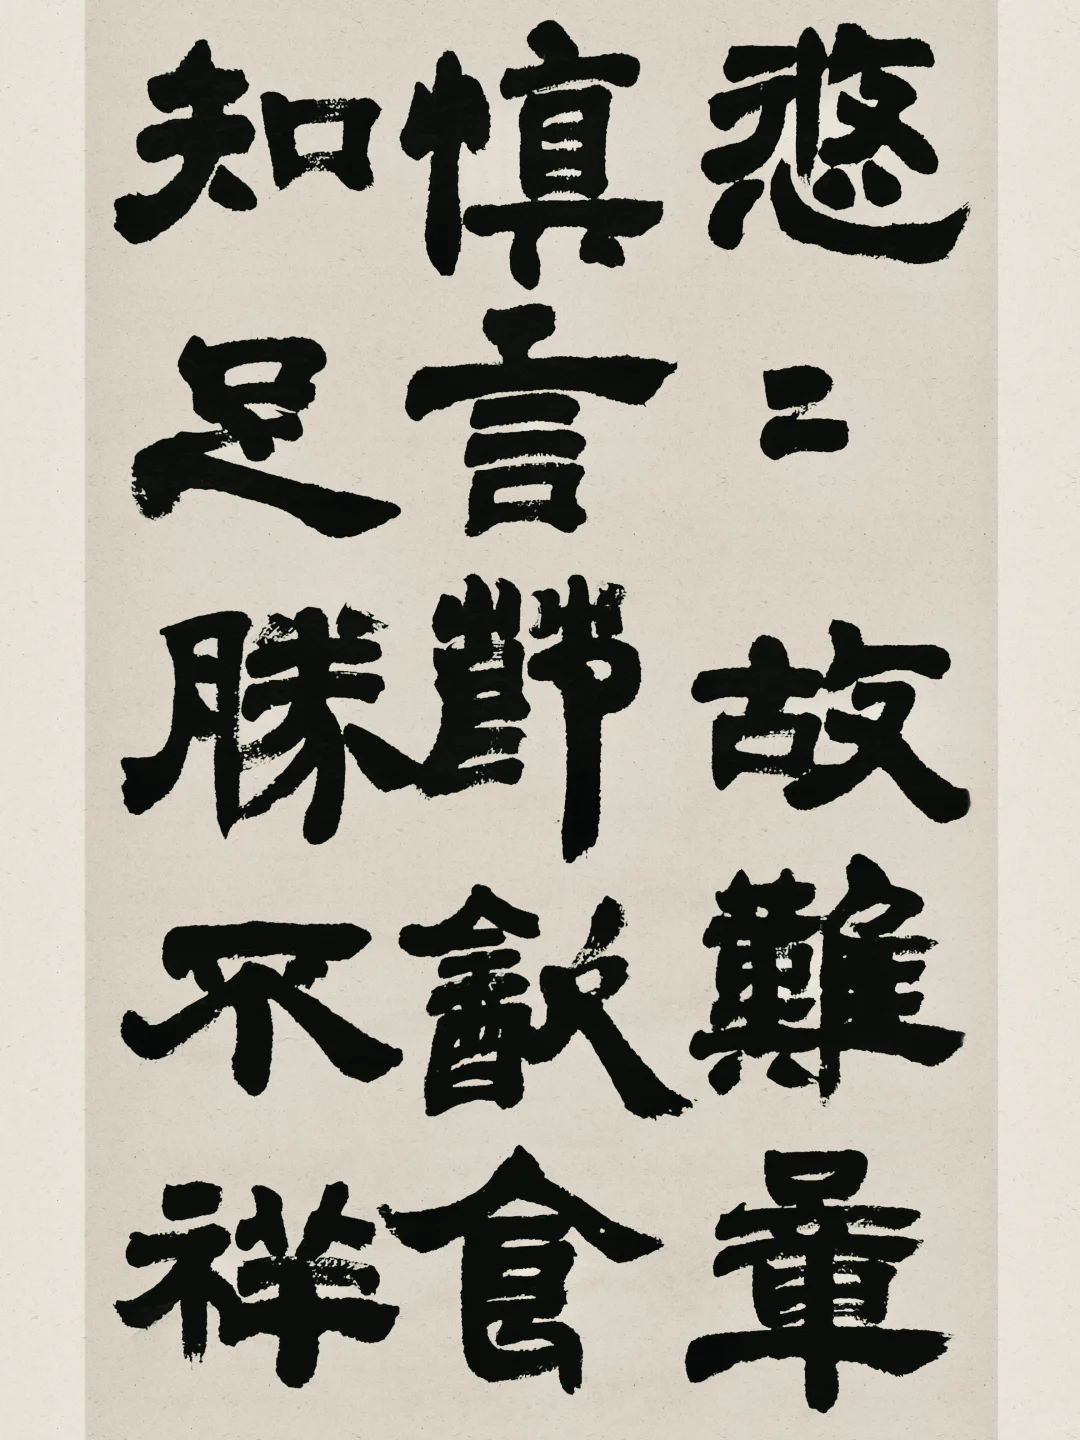 悠〻故難量
慎言節㱃食
知足勝不祥